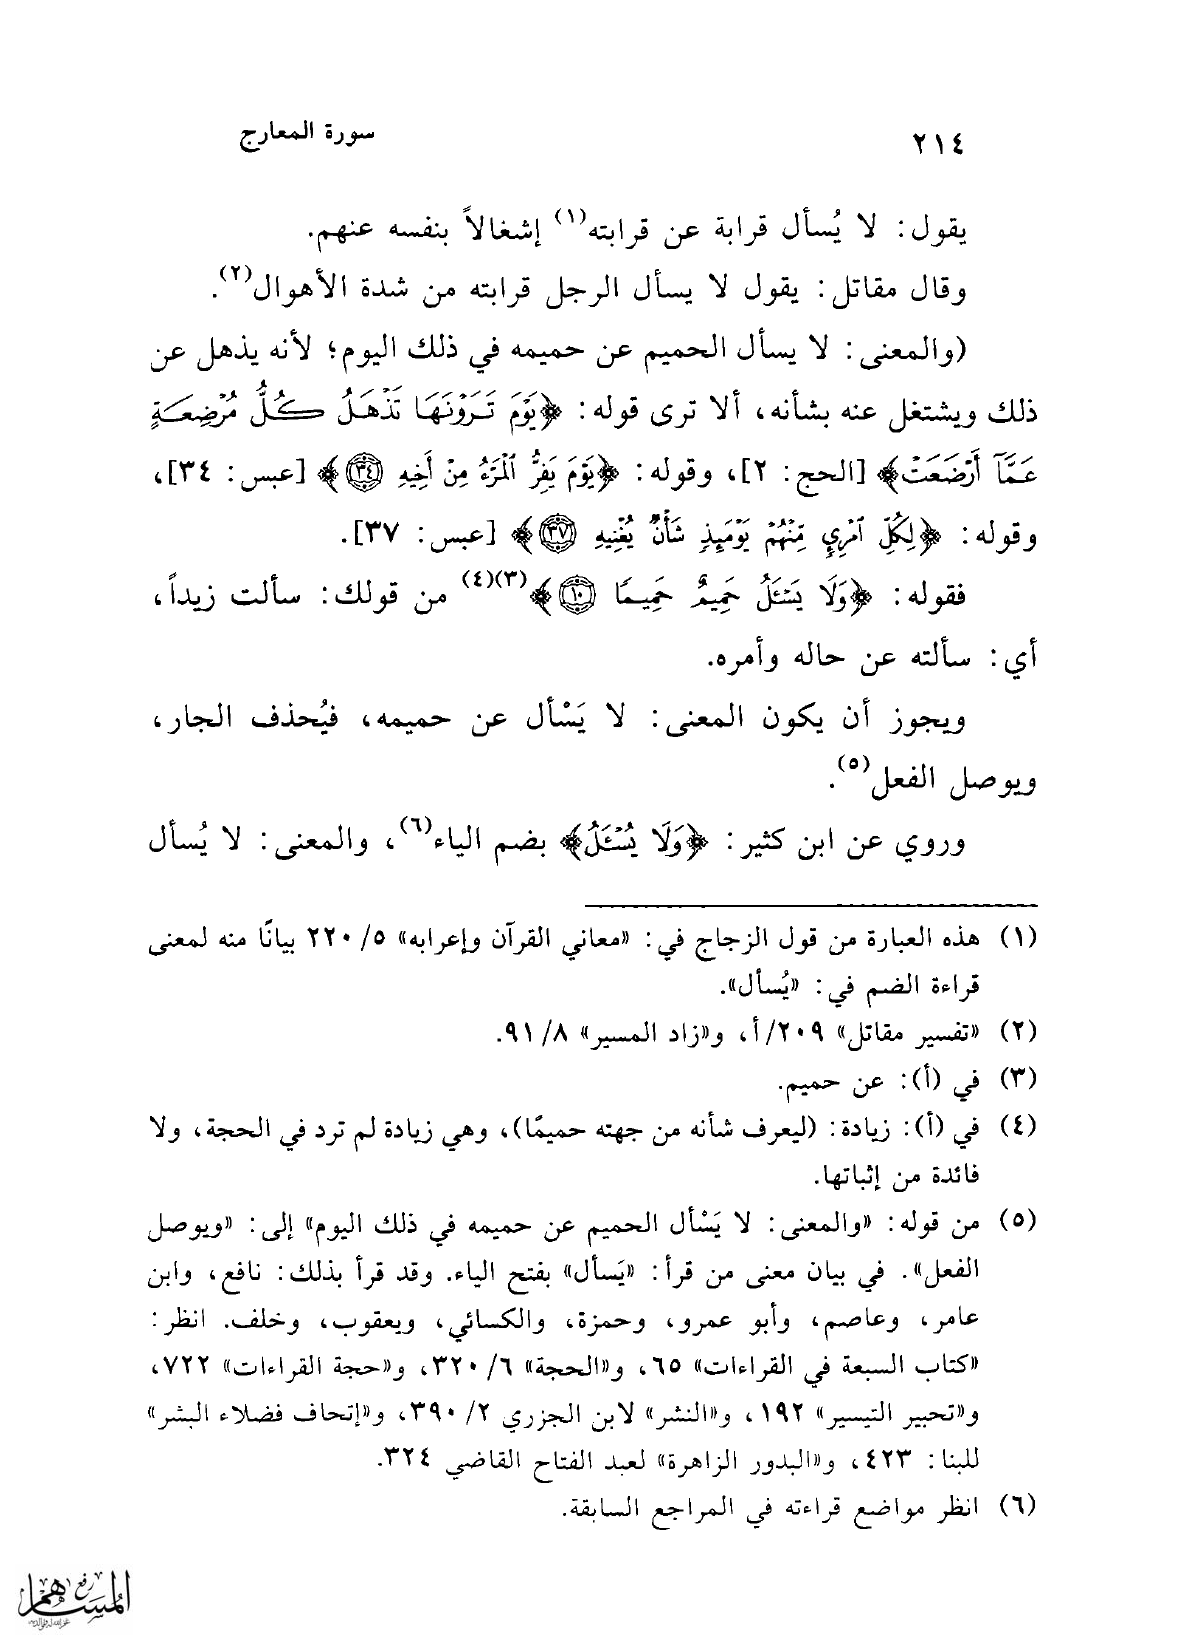 ٢١٤
سورة المعارج
يقول: لا يُسأل قرابة عن قرابته(١) إشغالاً بنفسه عنهم.
وقال مقاتل: يقول لا يسأل الرجل قرابته من شدة الأهوال(٢).
(والمعنى: لا يسأل الحميم عن حميمه في ذلك اليوم؛ لأنه يذهل عن
ذلك ويشتغل عنه بشأنه، ألا ترى قوله: ﴿يَوْمَ تَرَوْنَهَا تَذْهَلُ كُلُّ مُرْضِعَةٍ
عَمَّآ أَرْضَعَتْ﴾ [الحج: ٢]، وقوله: ﴿يَوْمَ يَفِرُّ ٱلْمَرْءُ مِنْ أَخِيهِ ٣٤﴾ [عبس: ٣٤]،
وقوله: ﴿لِكُلِّ ٱمْرِئٍ مِّنْهُمْ يَوْمَئِذٍ شَأْنٌ يُغْنِيهِ ٣٧﴾ [عبس: ٣٧].
فقوله: ﴿وَلَا يَسْـَٔلُ حَمِيمٌ حَمِيمًا ١٠﴾(٣)(٤) من قولك: سألت زيداً،
أي: سألته عن حاله وأمره.
ويجوز أن يكون المعنى: لا يَسْأل عن حميمه، فيُحذف الجار،
ويوصل الفعل(٥).
وروي عن ابن كثير: ﴿وَلَا يُسْـَٔلُ﴾ بضم الياء(٦)، والمعنى: لا يُسأل
(١) هذه العبارة من قول الزجاج في: «معاني القرآن وإعرابه» ٥/ ٢٢٠ بيانًا منه لمعنى
قراءة الضم في: «يُسأل».
(٢) «تفسير مقاتل» ٢٠٩/أ، و«زاد المسير» ٨/ ٩١.
(٣) في (أ): عن حميم.
(٤) في (أ): زيادة: (ليعرف شأنه من جهته حميمًا)، وهي زيادة لم ترد في الحجة، ولا
فائدة من إثباتها.
(٥) من قوله: «والمعنى: لا يَسْأل الحميم عن حميمه في ذلك اليوم» إلى: «ويوصل
الفعل». في بيان معنى من قرأ: «يَسأل» بفتح الياء. وقد قرأ بذلك: نافع، وابن
عامر، وعاصم، وأبو عمرو، وحمزة، والكسائي، ويعقوب، وخلف. انظر:
«كتاب السبعة في القراءات» ٦٥، و«الحجة» ٦/ ٣٢٠، و«حجة القراءات» ٧٢٢،
و«تحبير التيسير» ١٩٢، و«النشر» لابن الجزري ٢/ ٣٩٠، و«إتحاف فضلاء البشر»
للبنا: ٤٢٣، و«البدور الزاهرة» لعبد الفتاح القاضي ٣٢٤.
(٦) انظر مواضع قراءته في المراجع السابقة.
رفع
المساهم